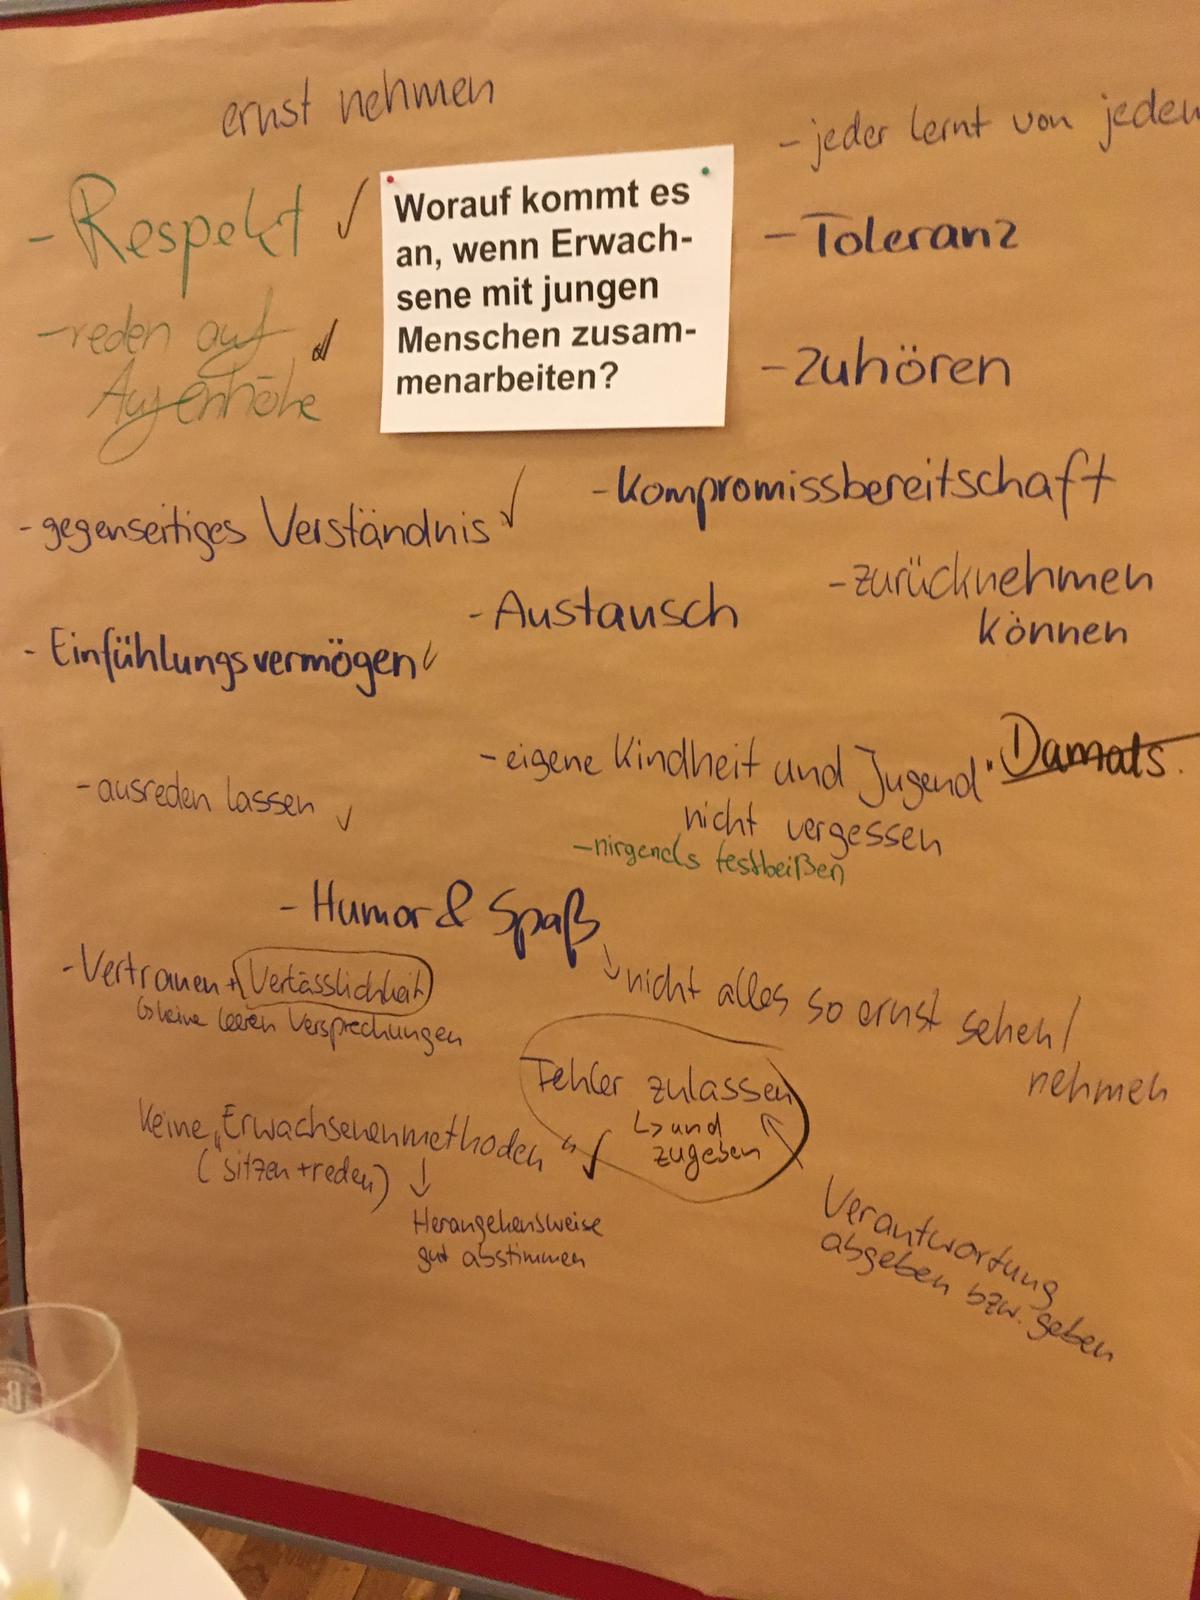 ernst nehmen
- jeder lernt von jedem
- Respekt ✓
Worauf kommt es
an, wenn Erwach-
sene mit jungen
Menschen zusam-
menarbeiten?
- Toleranz
- reden auf
Augenhöhe
- Zuhören
- Kompromissbereitschaft
- gegenseitiges Verständnis ✓
- zurücknehmen
können
- Austausch
- Einfühlungsvermögen ✓
- eigene Kindheit und Jugend "Damals
nicht vergessen
- ausreden lassen ✓
- nirgends festbeißen
- Humor & Spaß
↘ nicht alles so ernst sehen /
nehmen
- Vertrauen + Verlässlichkeit
↳ keine leeren Versprechungen
Fehler zulassen
↳ und
zugeben
Keine „Erwachsenenmethoden“ ✓
(sitzen + reden)
↓
Herangehensweise
gut abstimmen
Verantwortung
abgeben bzw. geben